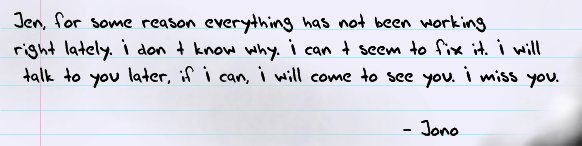 Jen, for some reason everything has not been working
right lately. i don t know why. i can t seem to fix it. i will
talk to you later, if i can, i will come to see you. i miss you.
- Jono